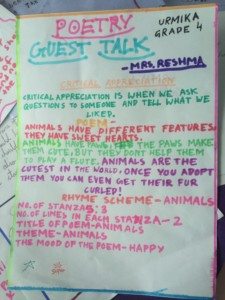 POETRY
URMIKA
GRADE 4
GUEST TALK
-MRS.RESHMA
CRITICAL APPRECIATION
CRITICAL APPRECIATION IS WHEN WE ASK
QUESTIONS TO SOMEONE AND TELL WHAT WE
LIKED.
POEM-
ANIMALS HAVE DIFFERENT FEATURES,
THEY HAVE SWEET HEARTS.
ANIMALS HAVE PAWS, THE PAWS MAKE
THEM CUTE, BUT THEY DONT HELP THEM
TO PLAY A FLUTE. ANIMALS ARE THE
CUTEST IN THE WORLD, ONCE YOU ADOPT
THEM YOU CAN EVEN GET THEIR FUR
CURLED!
RHYME SCHEME-ANIMALS
NO.OF STANZAS:3
NO.OF LINES IN EACH STANZA-2
TITLE OF POEM-ANIMALS
THEME-ANIMALS
THE MOOD OF THE POEM-HAPPY